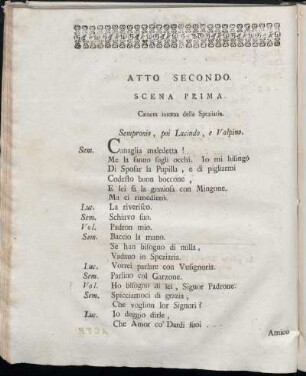 ATTO SECONDO.
SCENA PRIMA.
Camera interna della Spezieria.
Sempronio, poi Lucindo, e Volpino.
Sem. Canaglia maledetta!
Me la fanno sugli occhi. Io mi lusingo
Di Sposar la Pupilla, e di pigliarmi
Codesto buon boccone,
E lei fa la graziosa con Mingone.
Ma ci rimedierò.
Luc. La riverisco.
Sem. Schiavo suo.
Vol. Padron mio.
Sem. Bacio la mano.
Se han bisogno di nulla,
Vadano in Spezieria.
Luc. Vorrei parlare con Vusignoria.
Sem. Parlino col Garzone.
Vol. Ho bisogno di lei, Signor Padrone.
Sem. Spicciamoci di grazia,
Che voglion lor Signori?
Luc. Io deggio dirle,
Che Amor co' Dardi suoi ...
Amico